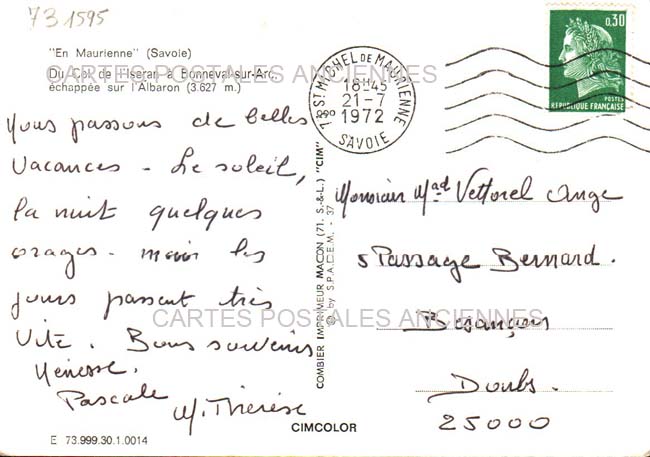 73 1595
"En Maurienne" (Savoie)
Du Col de l'Iseran à Bonneval-sur-Arc,
échappée sur l'Albaron (3.627 m.)
CARTES POSTALES ANCIENNES
Nous passons de belles
vacances - Le soleil,
la nuit quelques
orages - mais les
jours passent très
vite. Bons souvenirs
Pascale
M. Thérèse
E 73.999.30.1.0014
COMBIER IMPRIMEUR MACON (71. S.-&-L.) "CIM"
© by S.P.A.D.E.M. - 37
CIMCOLOR
73 ST MICHEL DE MAURIENNE
18H45
21-7
1972
SAVOIE
0,30
POSTES
REPUBLIQUE FRANÇAISE
Monsieur Mad Vettorel Ange
5 Passage Bernard.
CARTES POSTALES ANCIENNES
Besançon
Doubs.
25000